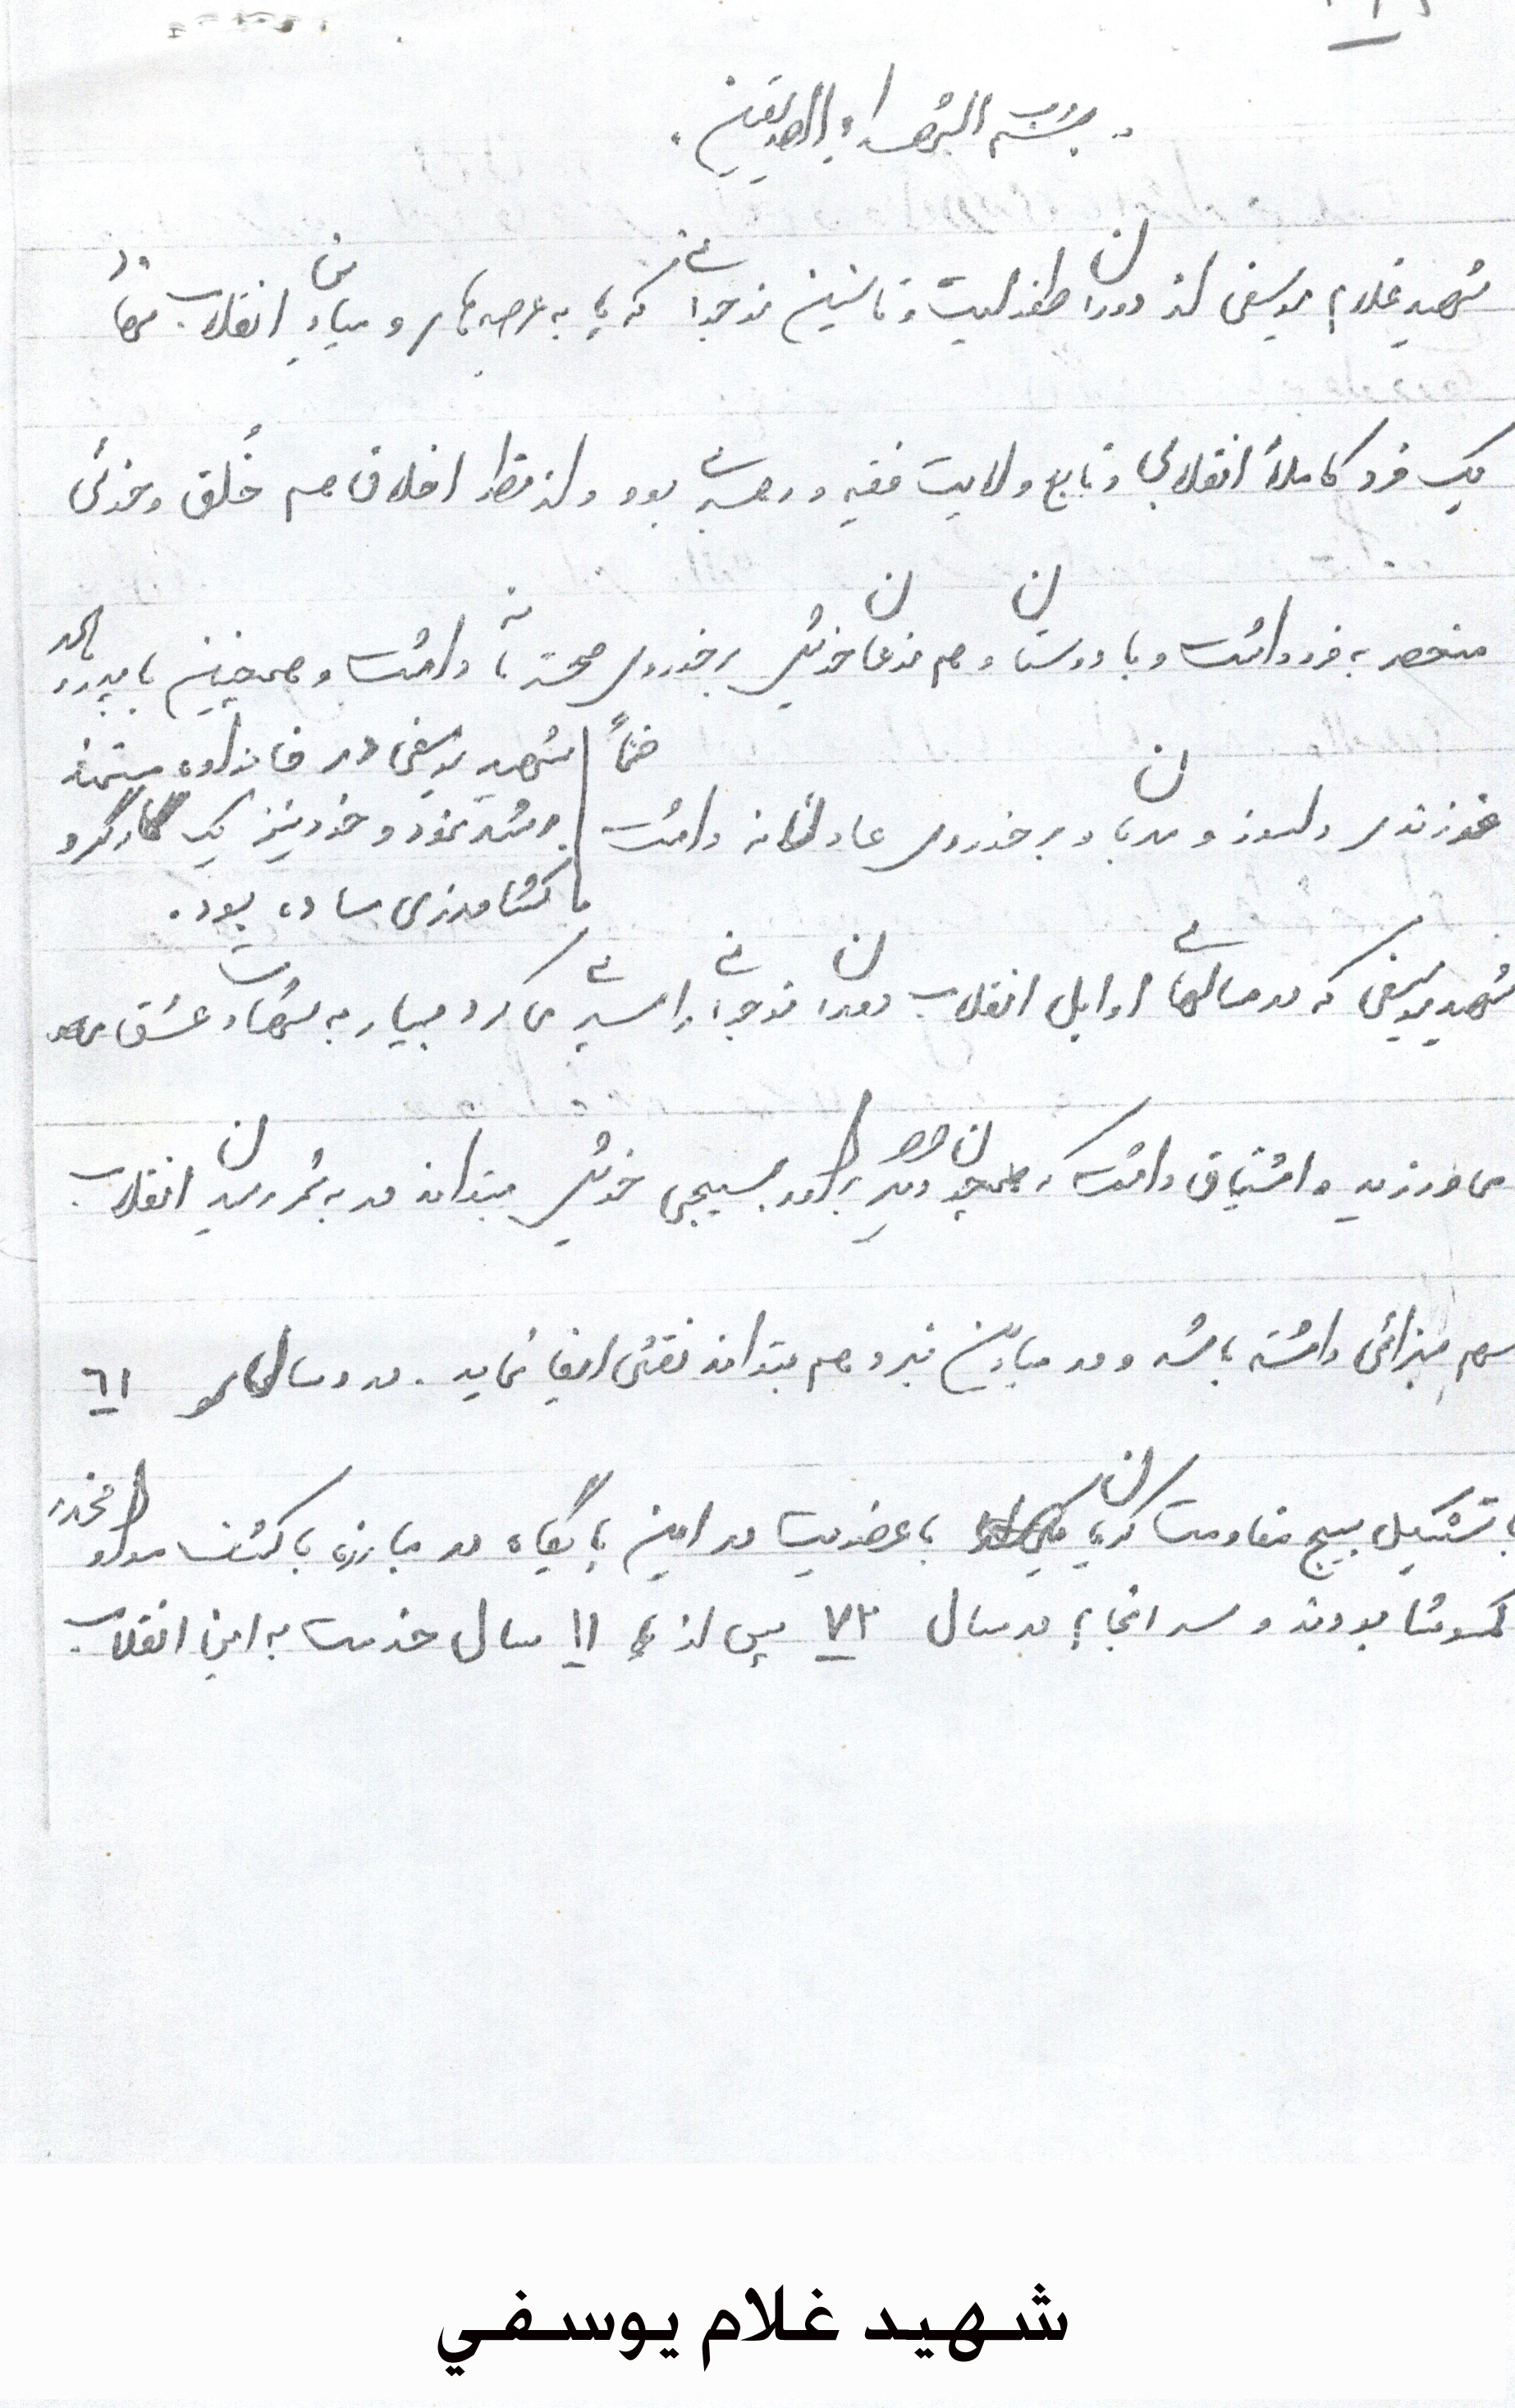 بسم رب الشهداء و الصدیقین.
شهید غلام یوسفی از دوران طفولیت و تا سنین نوجوانی که پا به عرصه‌های و میادین انقلاب نهاد
یک فرد کاملاً انقلابی و تابع ولایت فقیه و رهبری بود و از نظر اخلاق هم خُلق و خوئی
منحصر به فرد داشت و با دوستان و هم نوعان خویش برخوردی محترمانه داشت و همچنین با پدر و مادر
خود فرزندی دلسوز و مهربان و برخوردی عادلانه داشت
ضمناً شهید یوسفی در خانواده مستمند
رشد نمود و خود نیز یک کارگر و
یا کشاورزی ساده بود.
شهید یوسفی که در سالهای اوایل انقلاب دوران نوجوانی را سپری می کرد بسیار به شهادت عشق
می ورزید و اشتیاق داشت که همچون دیگر برادران بسیجی خویش بتواند در به ثمر رسیدن انقلاب
سهم بسزائی داشته باشد و در میادین نبرد هم بتواند نقشی ایفا نماید. در سالهای ٦١
با تشکیل بسیج مقاومت با عضویت در این پایگاه در مبارزه با کشف مواد مخدر
کوشا بودند و سر انجام در سال ٧٢ پس از ١١ سال خدمت به این انقلاب
شهيد غلام يوسفي